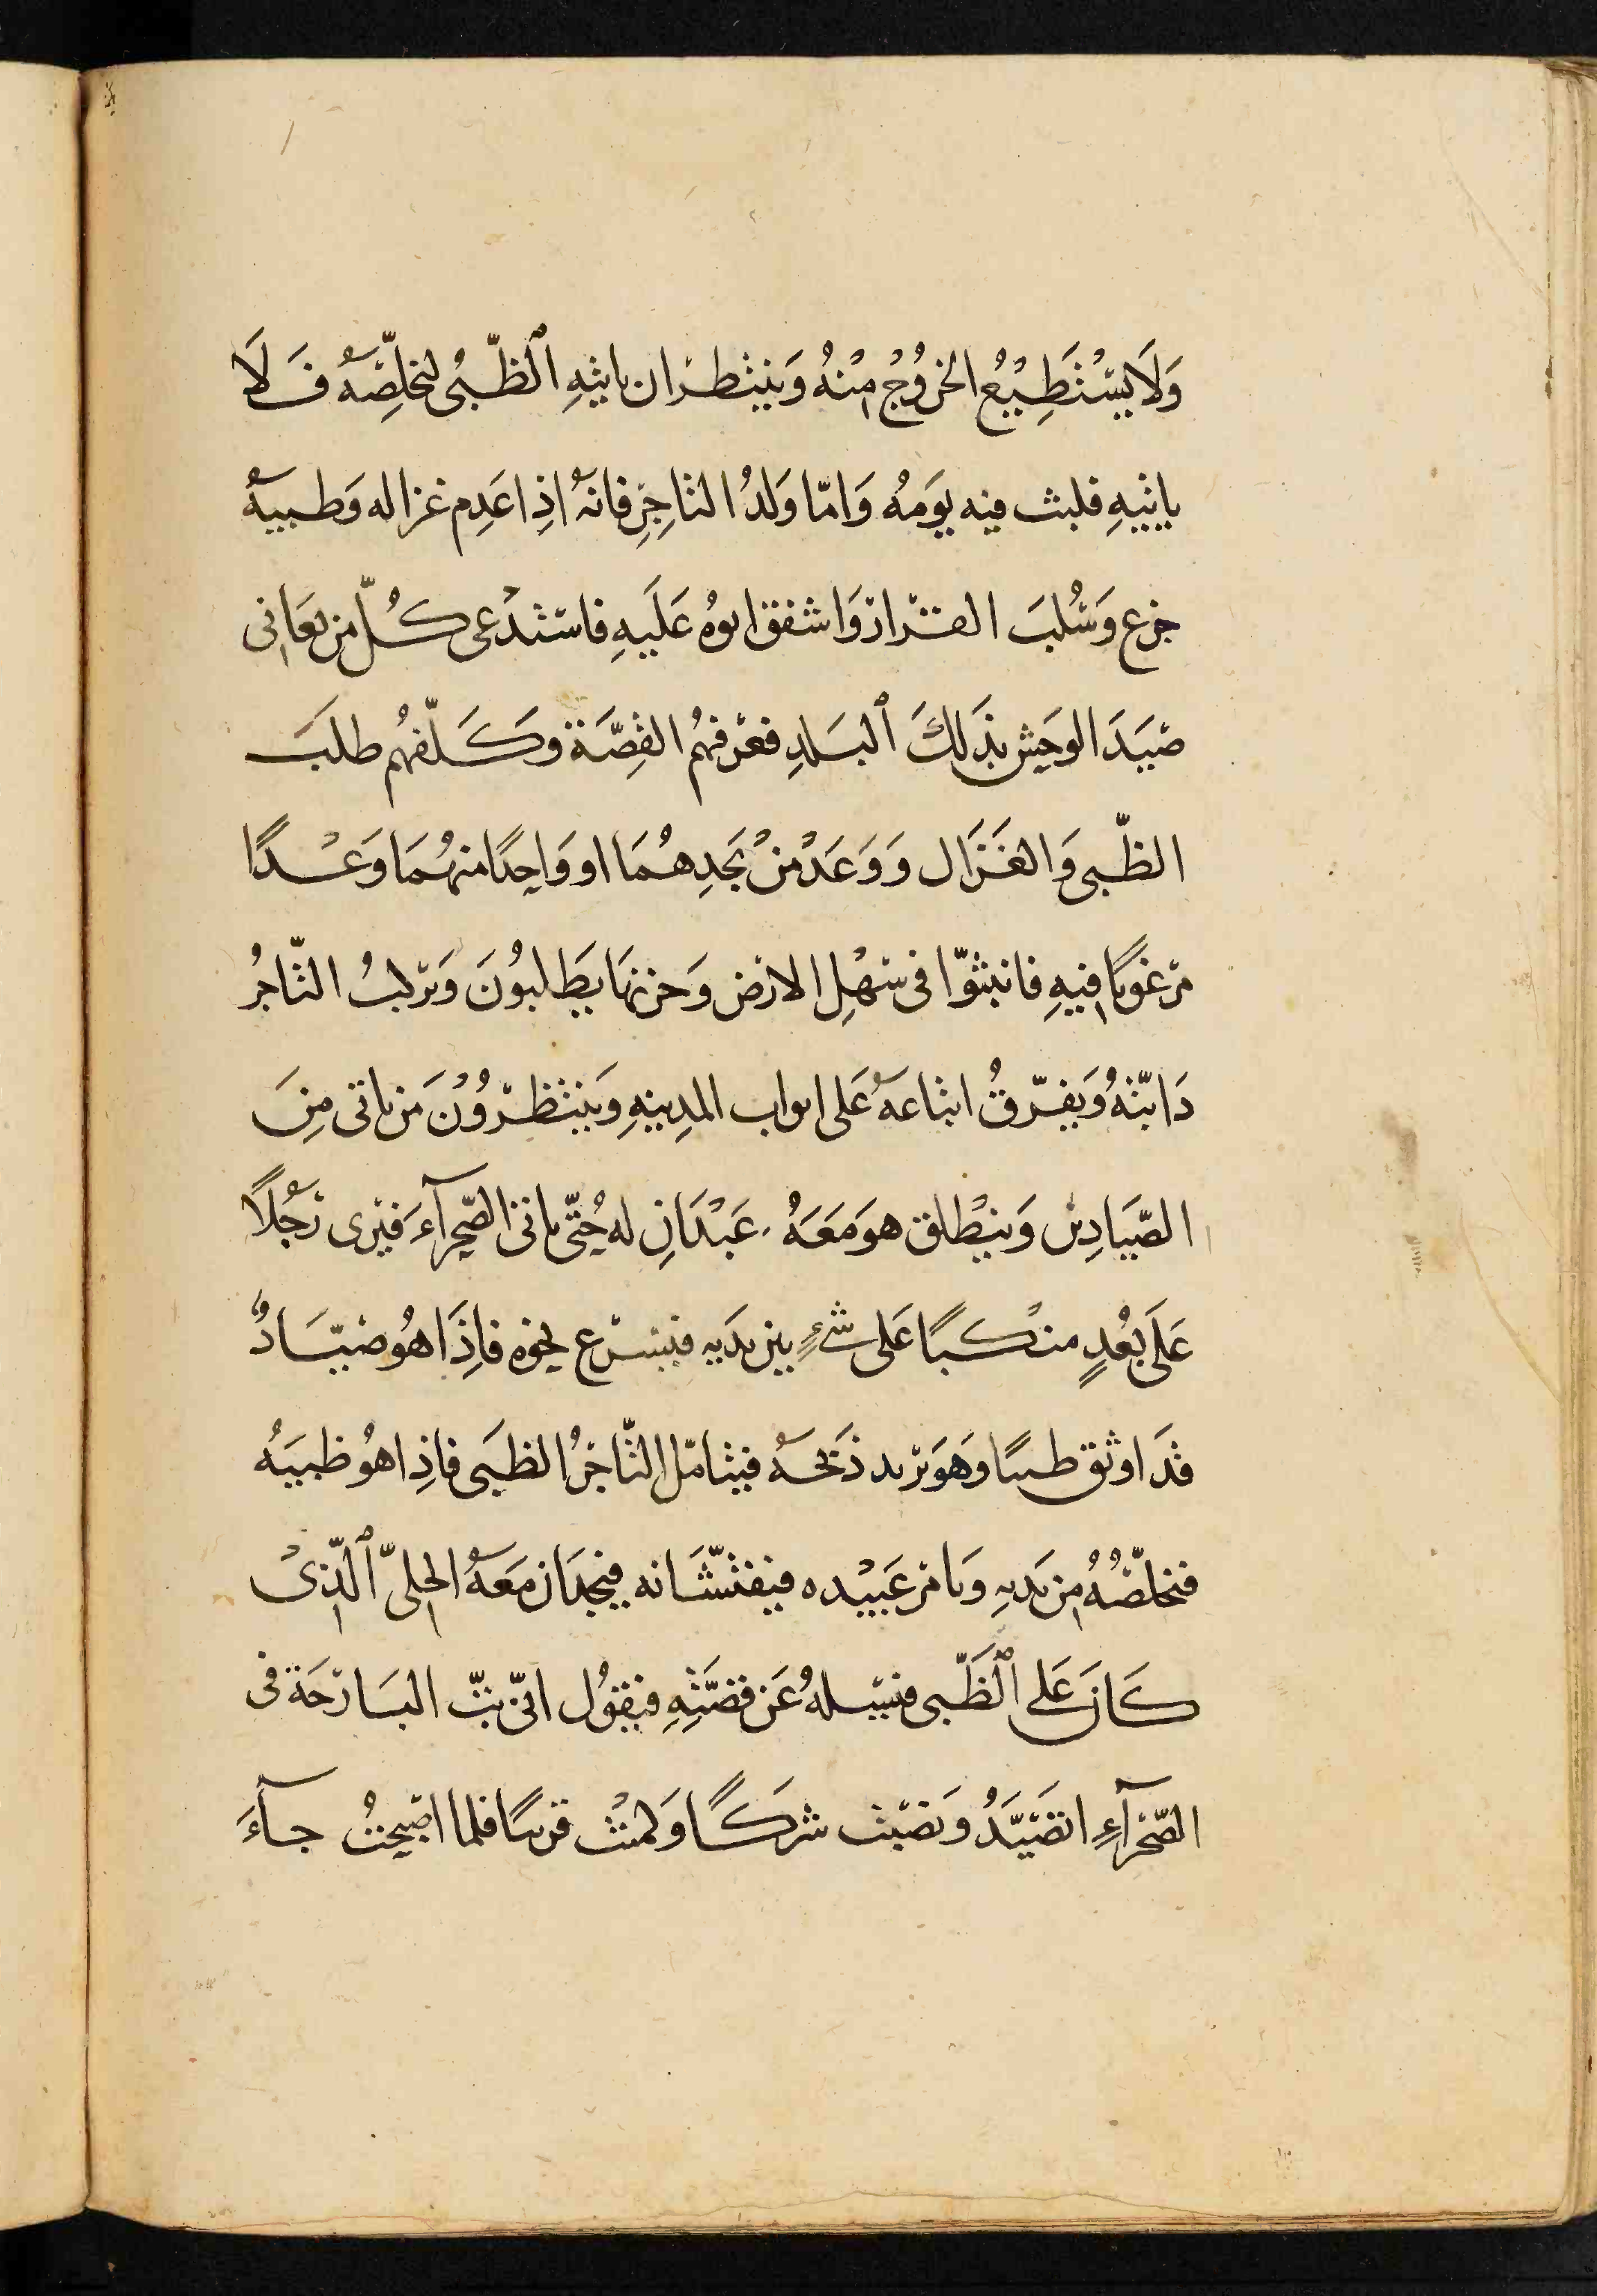 وَلَا يَسْتَطِيْعُ الخُرُوْجُ مِنْهُ وَيَنْتظر ان ياتيهِ الظَّبْىُ ليخلّصَهُ فَلَا
ياتيهِ فلبث فيه يَومَهُ وَامّا وَلدُ التاجِرِ فانهُ اذِا عَدِم غزاله وَظبيهُ
جزع وَسُلبَ القرار وَاشفق ابوهُ عَلَيهِ فاستدْعى كُلّ من يعَانى
صَيدَ الوحِش بذَلكَ البَلدِ فعرّفهُم القِصَّة وكَلّفهُم طلَبَ
الظّبى وَالغَزَال وَوَعَدَ مْن يَجدِهُمَا او وَاحِدًا منهُمَا وَعْدًا
مرغوبًا فيهِ فانبثوّا فى سَهْلِ الارض وَحزنهَا يطَلبُونَ وَيَركبُ التّاجرُ
دَابّتهُ وَيفرّقُ اتباعَهُ عَلى ابواب المدِينهِ وَينتظرُوْنَ مَن ياتى مِنَ
الصّيَادِين وَينطْلق هوَ مَعَهُ عَبْدَانِ له حُتّى ياتى الصّحرآءَ فيَرى رَجُلًا
عَلَى بُعْدٍ منْكبًا عَلى شىءٍ بين يدَيه فيسرع نحوه فاذَا هُو صَيّادٌ
قدَ اوثق ظبيًا وَهوَ يريد ذَبحَهُ فيتامّل التّاجرُ الظبَى فاذِا هوُ ظبيَهُ
فخلّصُهُ من يَديهِ وَيامر عَبيْده فيفتشّانه فيجدَان معَهُ الحِلىّ الّذىْ
كَانَ عَلى الظّبى فيسَلهُ عَن قصَّتِهِ فيقوُل انّى بتّ البَارحَة فى
الصّحرآءِ اتصَيَّدُ وَنصَبْت شركًا وَكمنْت قريبًا فلما اصْبحتُ جآءَ